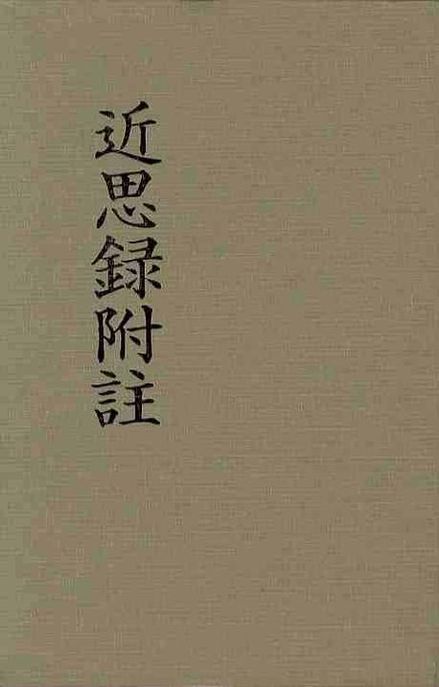 近思録附註